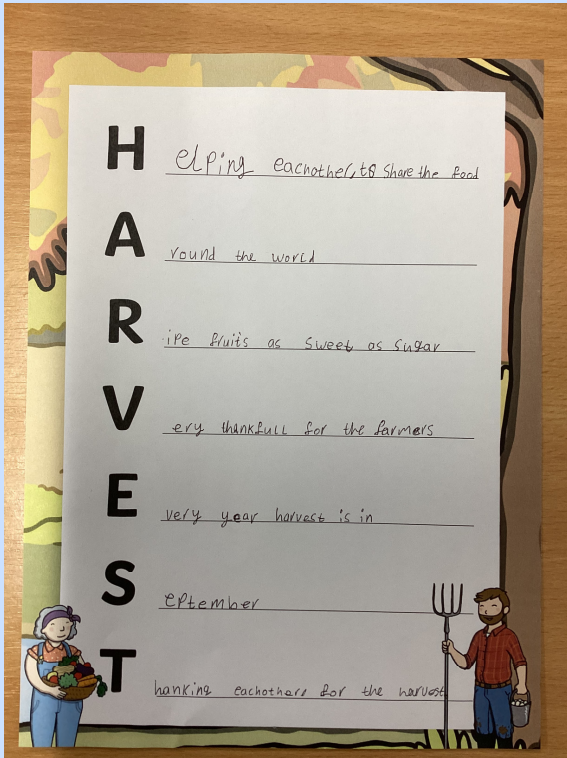 H elping eachother, to share the food
A round the world
R ipe fruits as sweet as sugar
V ery thankfull for the farmers
E very year harvest is in
S eptember
T hanking eachothers for the harvest